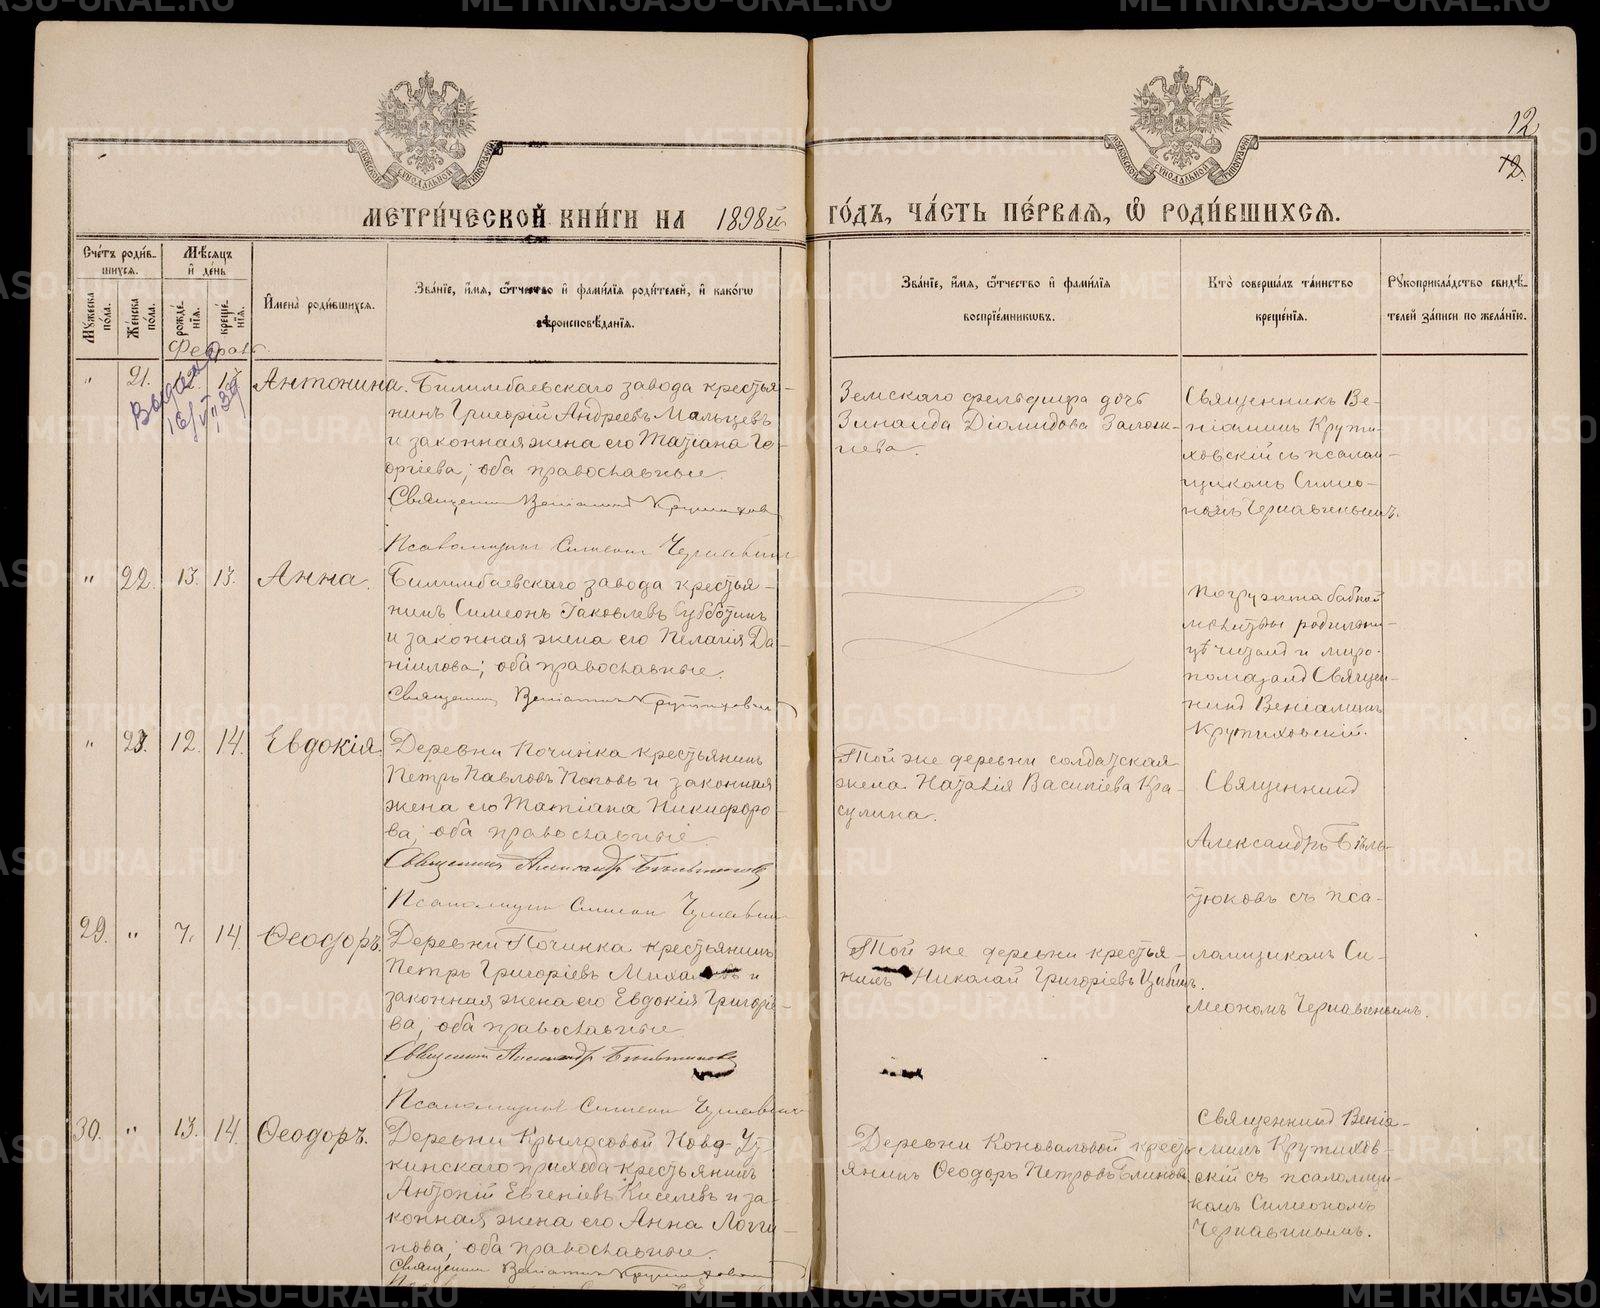 12
12.
МЕТРИ́ЧЕСКОЙ КНИ́ГИ НА 1898й ГО́ДЪ, ЧА́СТЬ ПЕ́РВАЯ, Ѽ РОДИ́ВШИХСЯ.
Сче́тъ роди́в-
шихся.
Мѣ́сяцъ
и́ де́нь
Мꙋжеска по́ла.
Же́нска по́ла.
рожде́нїя.
креще́нїя.
И҆мена̀ роди́вшихся.
Зва́нїе, и҆́мя, ѻ҆́тчество и҆ фами́лїя роди́телей, и҆ како́гѡ
вѣроисповѣ́данїя.
Зва́нїе, и҆́мя, ѻ҆́тчество и҆ фами́лїя
воспрїе́мникѡвъ.
Кто̀ соверша́лъ та́инство
креще́нїя.
Рꙋкоприкла́дство свидѣ́-
телей за́писи по жела́нїю.
" 21. Антонина.
Билимбаевскаго завода крестья-
нинъ Григорій Андреевъ Мальцевъ
и законная жена его Татіана Ге-
оргіева; оба православные.
Священник Веніамин Крутиховс
Псаломщик Симеон Чернавин
Земскаго фельдшера дочь
Зинаида Діомидова
Священникъ Ве-
ніаминъ Крути-
ховскій съ псалом-
щикомъ Симео-
номъ Чернавинымъ.
" 22. 13. 13. Анна.
Билимбаевскаго завода крестья-
нинъ Симеонъ Іаковлевъ Субботинъ
и законная жена его Пелагія Да-
ніилова; оба православные.
Священник Веніамин Крутиховский
Погружена бабкой
молитвы родильни-
цѣ читалъ и миро-
помазалъ Священ-
никъ Веніаминъ
Крутиховскій.
" 23. 12. 14. Евдокія.
Деревни Починка крестьянинъ
Петръ Павловъ Поповъ и законная
жена его Татіана Никифоро-
ва; оба православные.
Священник Александр
Псаломщик Симеон Чернавин
Той же деревни солдатская
жена Наталія Василіева Кра-
сулина.
Священникъ
Александръ Бѣль-
тюковъ съ пса-
ломщикомъ Си-
меономъ Чернавинымъ.
29. " 7. 14. Ѳеодоръ.
Деревни Починка крестьянинъ
Петръ Григоріевъ и
законная жена его Евдокія Григоріе-
ва; оба православные
Священник Александр
Псаломщик Симеон Чернавин
Той же деревни крестья-
нинъ Николай Григоріевъ
30. " 13. 14. Ѳеодоръ.
Деревни Крылосовой Ново-Ут-
кинскаго прихода крестьянинъ
Антоній Евгеніевъ Киселевъ и за-
конная жена его Анна Логги-
нова; оба православные.
Священник Веніамин Крутиховский
Деревни Коноваловой кресть-
янинъ Ѳеодоръ Петровъ Блиновъ
Священникъ Веніа-
минъ Крутихов-
скій съ псаломщи-
комъ Симеономъ
Чернавинымъ.
METRIKI.GASO-URAL.RU